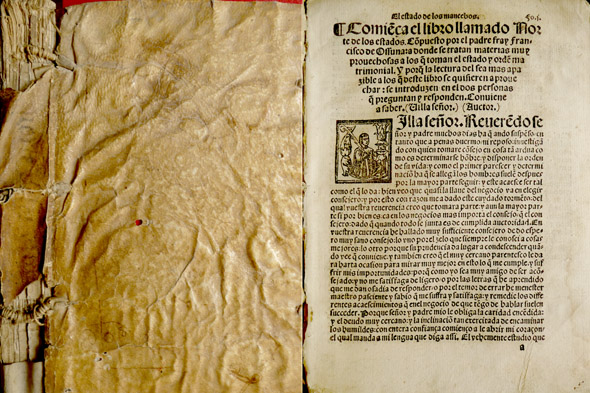 El estado de los mancebos.
¶ Comiẽça el libro llamado Nor
te de los estados. Cõpuesto por el padre fray Fran
cisco de Ossuna: a donde se tratan materias muy
prouechosas a los q̃ toman el estado y ordẽ ma
trimonial. Y porq̃ la lectura del sea mas apa
zible a los q̃ deste libro se quisieren a proue
char: se introduzen en el dos personas
q̃ preguntan y responden. Conuiene
a saber. (Villa señor.) (Auctor.)
Villa señor. Reuerẽdo se
ñor y padre muchos dias ha q̃ ando suspẽso en
tanto que a penas duermo ni reposo: inuestigã
do con quien tomare cõsejo en cosa tã ardua co
mo es determinar se hõbre, y disponer la orden
de su vida: y como el primer parescer y determi
naciõ ha q̃ se allegã los hombres suele despues
por la mayor parte seguir: y este acaesce ser tal
como el q̃ lo da: bien veo que quasi la llaue del negocio ya en elegir
consejero: y por esto con razon me a dado este cuydado tormẽto. del
qual vuestra reuerencia creo que tomara parte: y aun la mayor par
te si por bien en los negocios mas importa el consejo: q̃ el con
sejero: dado q̃ quando todo se junta es de cumplida auctoridad. En
vuestra reuerencia he hallado muy sufficiente consejero: de do espe
ro muy sano consejo: lo vno por el zelo que siempre le conosci a cosas
mejores: lo otro porque su prudencia da lugar a condescender quã
do vee q̃ conuiene: y tambien creo q̃ el muy cercano parentesco le da
ra harta ocasion para mirar muy mejor en esto lo q̃ me cumple, y suf
frir mis importunidades: porq̃ como yo sea muy amigo de ser acõ
sejado: y no me satisfaga de ligero: o por las letras q̃ he aprendido
que me dan osadia de responder: o por el temor de errar he menester
maestro paciente y sabio q̃ me suffra y satisfaga: y remedie los diffe
rentes acaescimientos q̃ en el negocio de que tẽgo de hablar suelen
succeder. Y porque señor y padre mio le obliga la caridad encẽdida:
y el deudo muy cercano: y la inclinaciõ tan exercitada de encaminar
los humildes: con entera confiança comienço a le abrir mi coraçon:
el qual manda a mi lengua que diga assi. El vehemente estudio que
a